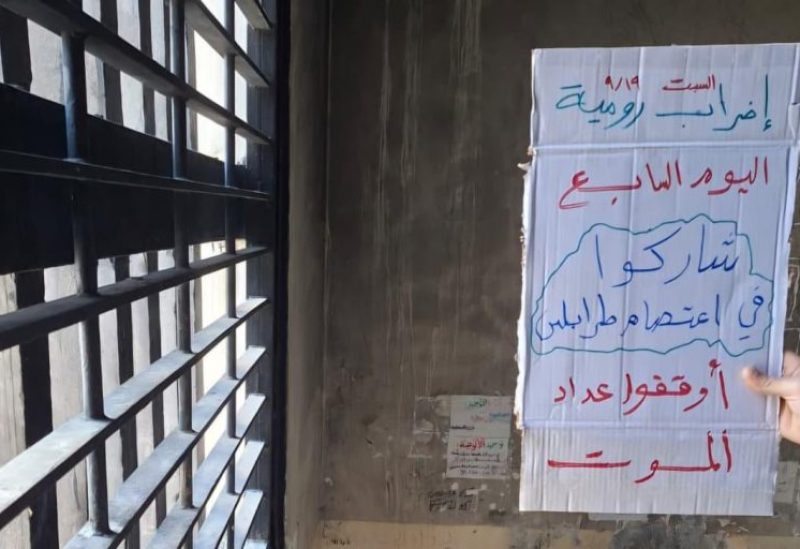 السبت ٩/١٩
إضراب رومية
اليوم السابع
شاركوا
في اعتصام طرابلس
أوقفوا عداد
ألموت
توحيد الألوهية